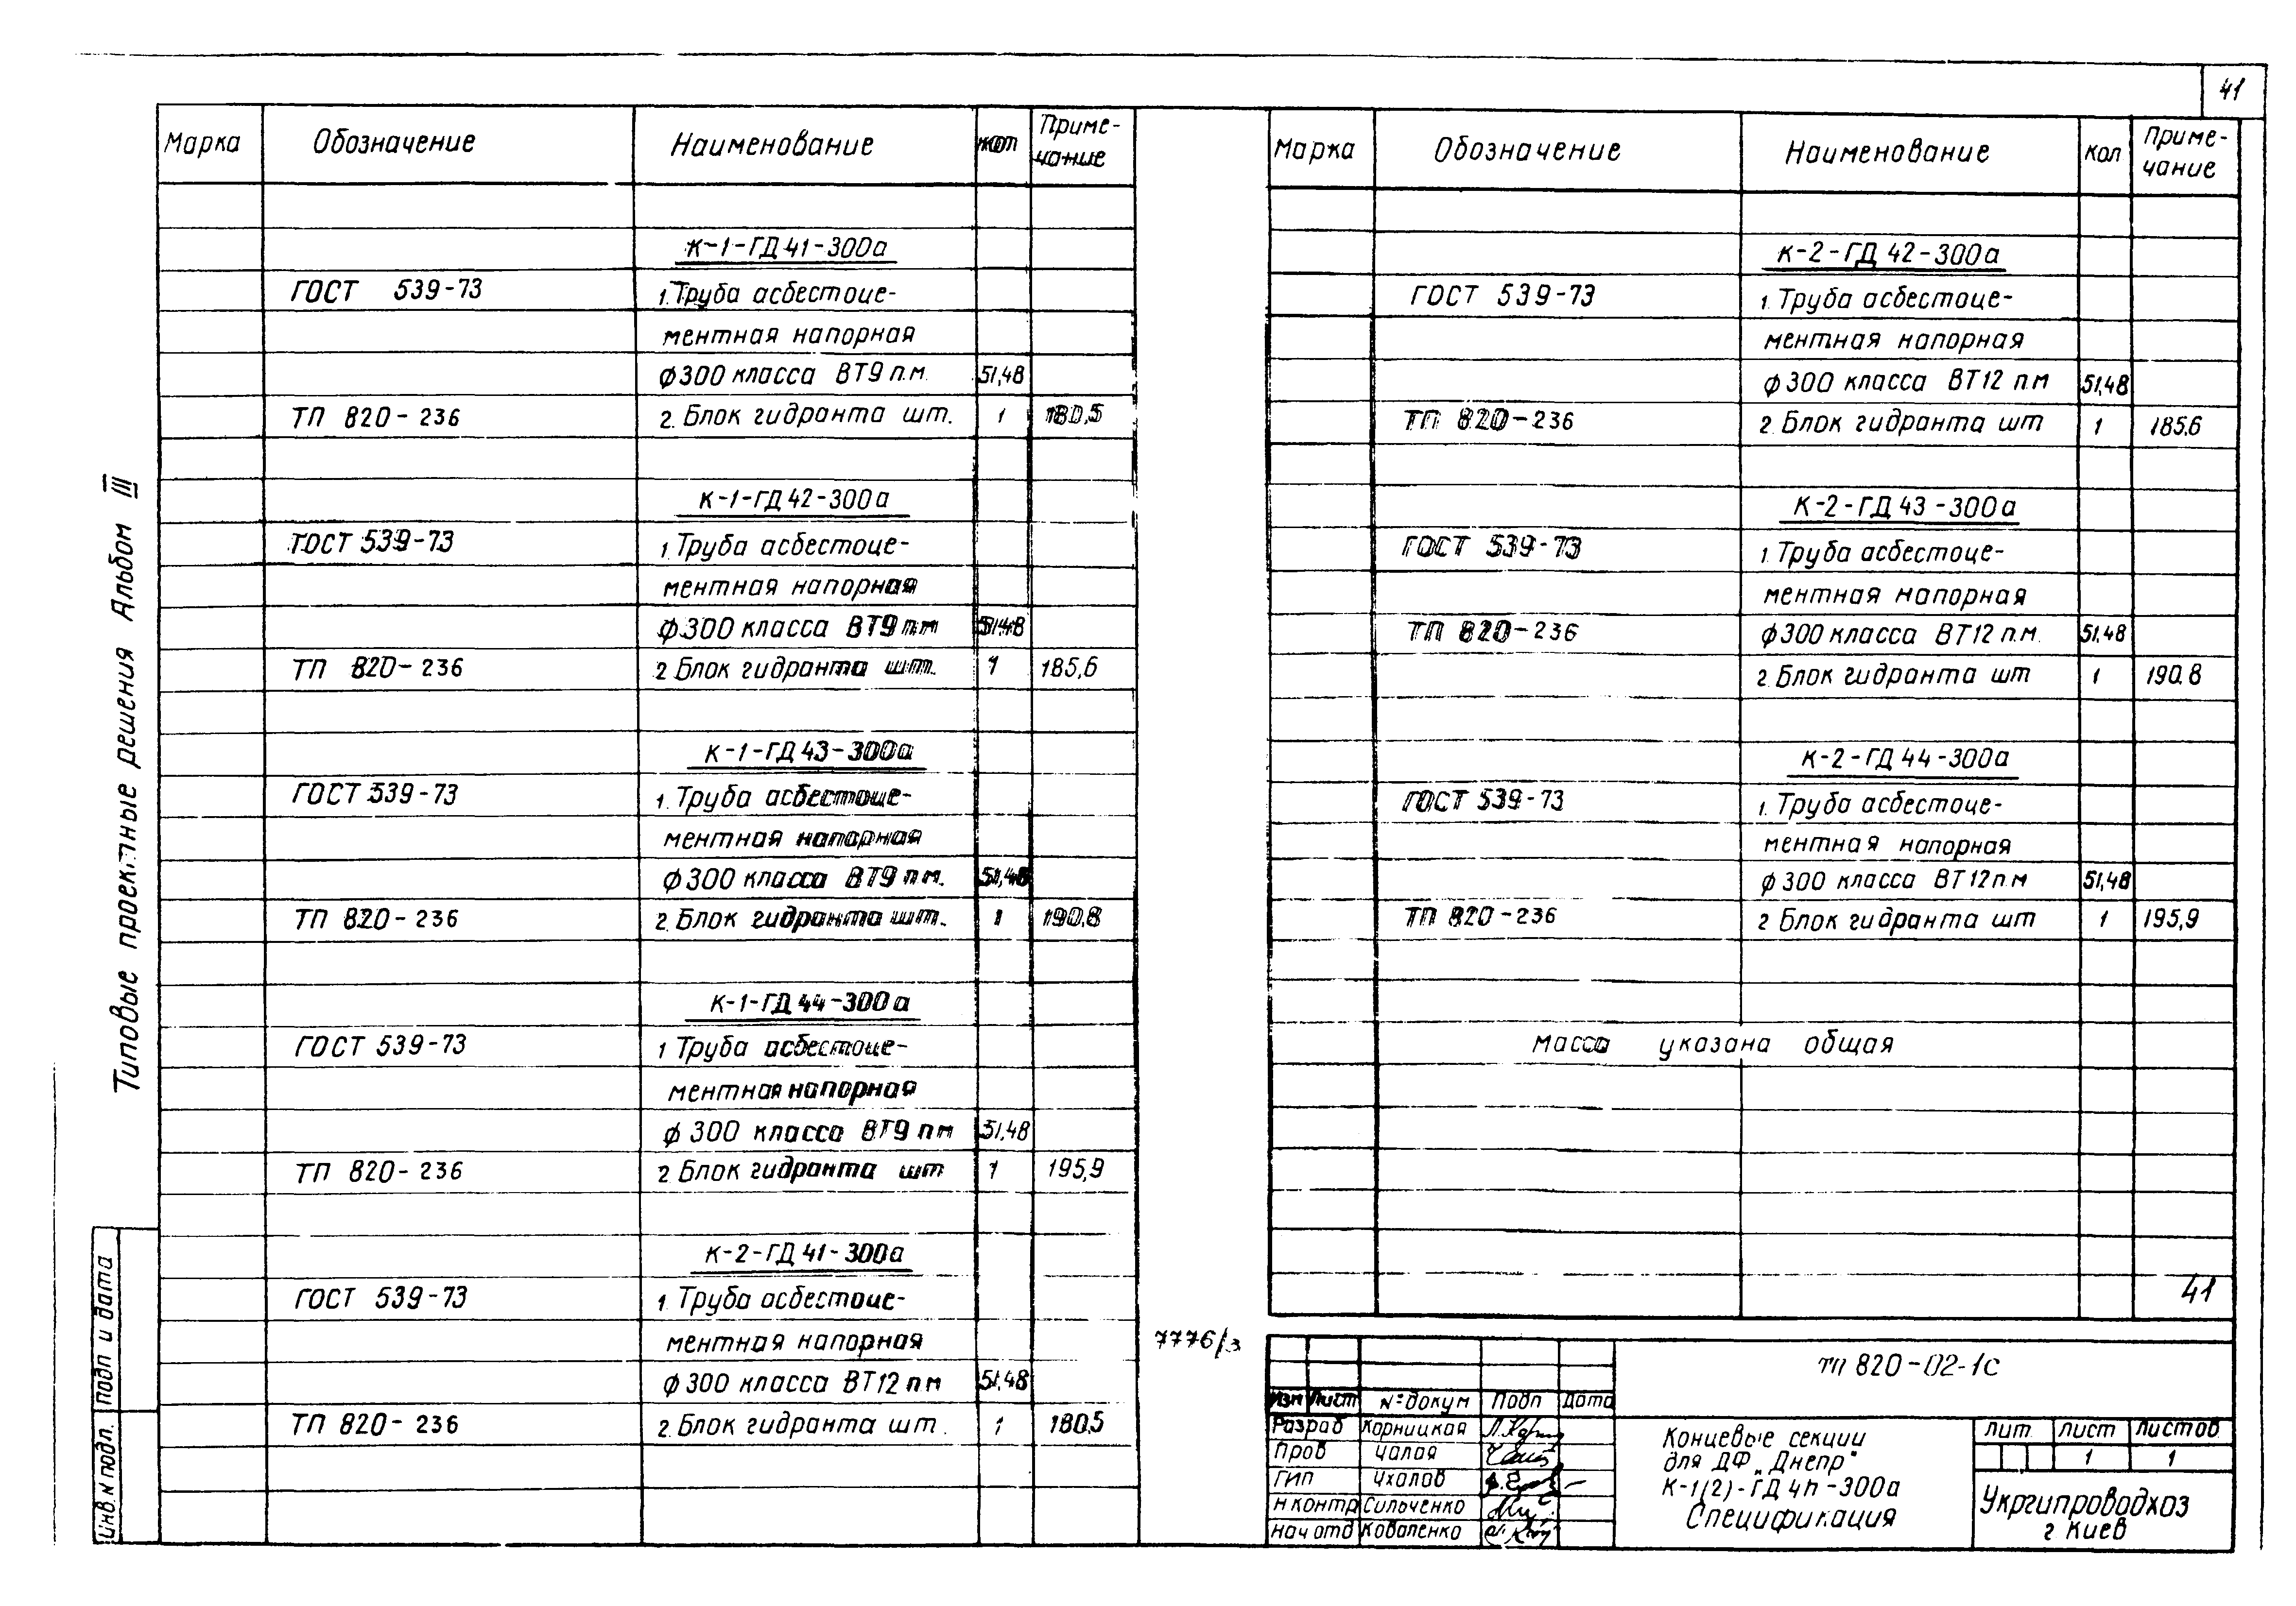 41
Типовые проектные решения Альбом III
Марка Обозначение Наименование кол Приме-
чание
К-1-ГД 41-300а
ГОСТ 539-73 1. Труба асбестоце-
ментная напорная
ф300 класса ВТ9 п.м. 51,48
ТП 820-236 2. Блок гидранта шт. 1 180,5
К-1-ГД 42-300а
ГОСТ 539-73 1. Труба асбестоце-
ментная напорная
ф300 класса ВТ9 п.м 51,48
ТП 820-236 2 Блок гидранта шт. 1 185,6
К-1-ГД 43-300а
ГОСТ 539-73 1. Труба асбестоце-
ментная напорная
ф300 класса ВТ9 п.м. 51,48
ТП 820-236 2. Блок гидранта шт. 1 190,8
К-1-ГД 44-300а
ГОСТ 539-73 1 Труба асбестоце-
ментная напорная
ф 300 класса ВТ9 пм 51,48
ТП 820-236 2. Блок гидранта шт 1 195,9
К-2-ГД 41-300а
ГОСТ 539-73 1. Труба асбестоце-
ментная напорная
ф300 класса ВТ12 пм 51,48
ТП 820-236 2. Блок гидранта шт. 1 180,5
Марка Обозначение Наименование кол Приме-
чание
К-2-ГД 42-300а
ГОСТ 539-73 1. Труба асбестоце-
ментная напорная
ф300 класса ВТ12 п.м 51,48
ТП 820-236 2. Блок гидранта шт 1 185,6
К-2-ГД 43-300а
ГОСТ 539-73 1. Труба асбестоце-
ментная напорная
ТП 820-236 ф300 класса ВТ12 п.м. 51,48
2. Блок гидранта шт 1 190.8
К-2-ГД 44-300а
ГОСТ 539-73 1. Труба асбестоце-
ментная напорная
ф300 класса ВТ12п.м 51,48
ТП 820-236 2 Блок гидранта шт 1 195,9
Масса указана общая
41
7776/3
Инв.N подл. Подп и дата
тп 820-02-1с
Изм Лист N=докум Подп Дата
Разраб Корницкая
Пров Чалая
ГИП Ухалов
Н контр Сильченко
Нач отд Коваленко
Концевые секции
для ДФ „Днепр"
К-1(2)-ГД 4п-300а
Спецификация
Лит. Лист Листов
1 1
Укргипроводхоз
г Киев